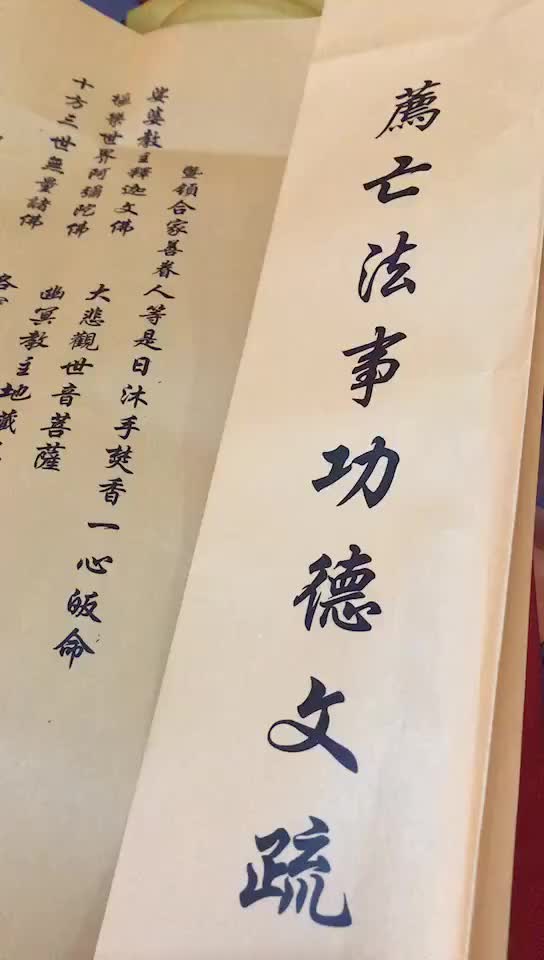 薦亡法事功德文疏
暨領合家善眷人等是日沐手焚香一心皈命
娑婆教主釋迦文佛
極樂世界阿彌陀佛
十方三世無量諸佛
大悲觀世音菩薩
幽冥教主地藏